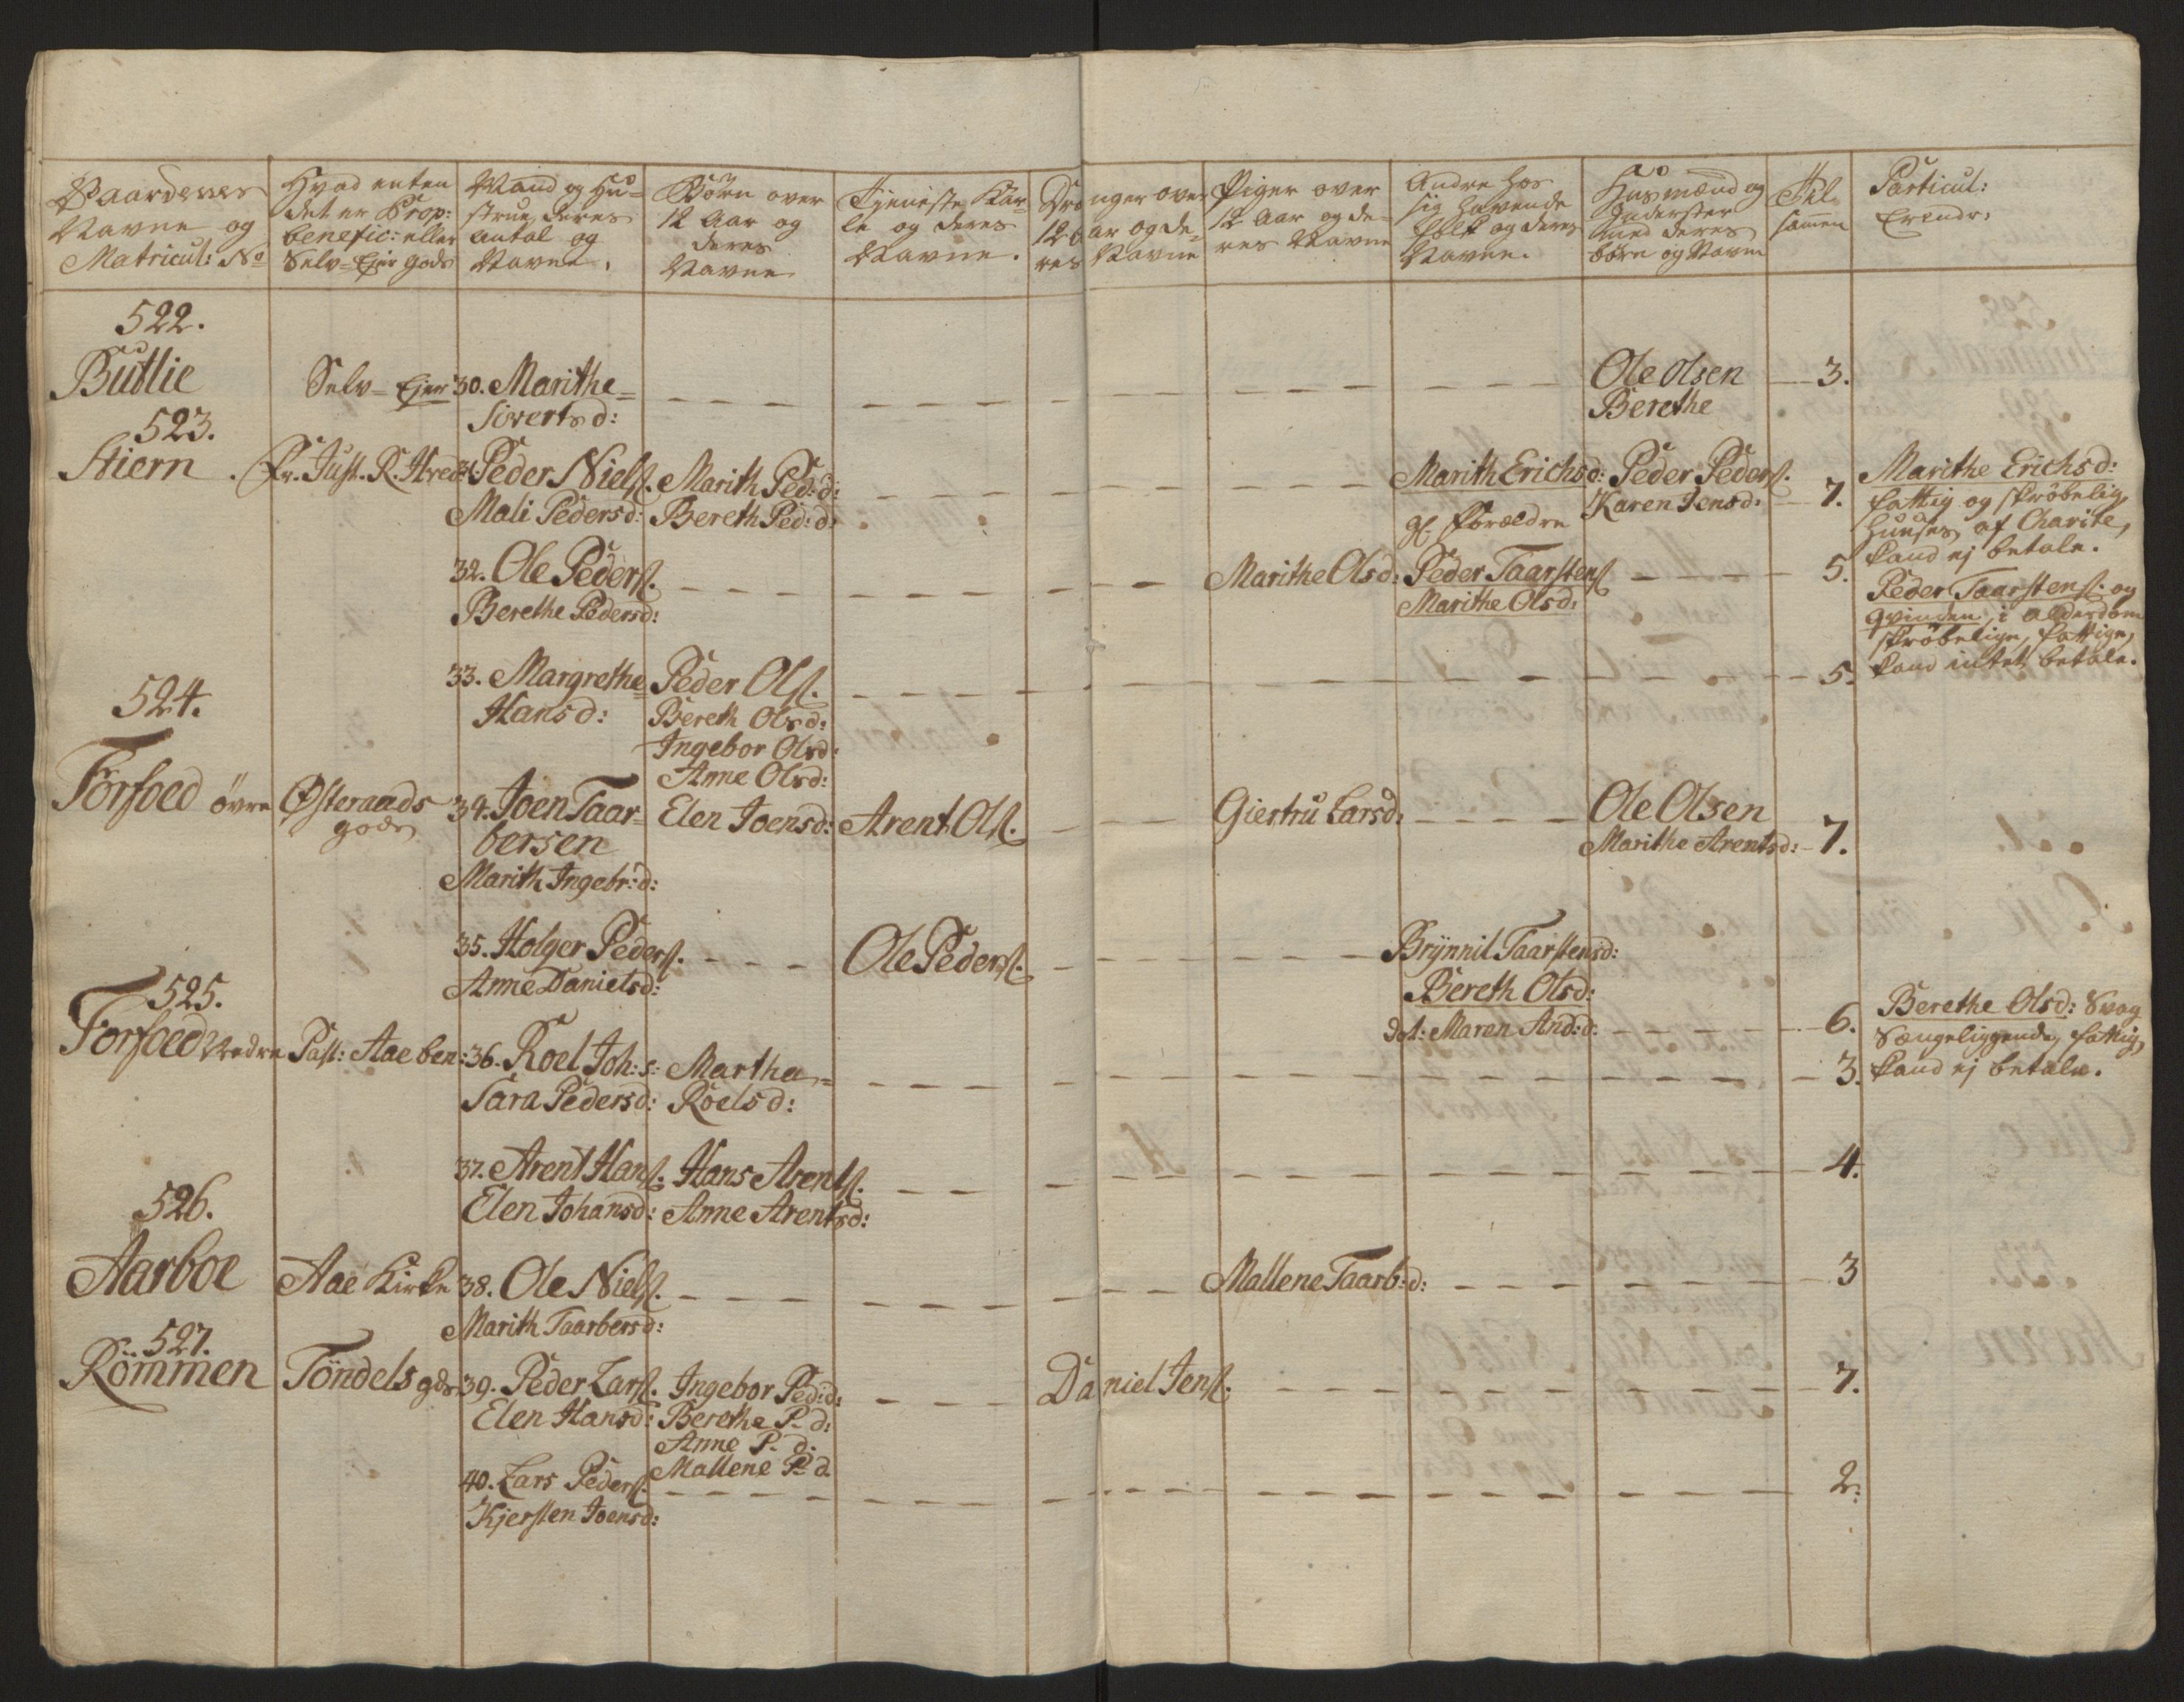 Gaardenes
Navne og
Matricul: No
Hvad enten
det er Prop:
benefic: eller
Selv=Ejer gods
Mand og Hu=
strue, deres
antal og
Navne.
Börn over
12 Aar og
deres
Navne
Tjeneste Kar=
le og deres
Navne.
Drenger over
12 Aar og de=
res Navne
Piger over
12 Aar og de=
res Navne
Andre hos
sig havende
folk og deres
Navne.
Husmænd og
Inderster
med deres
börn og Navne
Til
sammen
Particul:
Erendr:
522.
Butlie Selv=Ejer 30. Marithe= Ole Olsen 3.
Sivertsd: Berethe
523.
Stiern. Fr. Just. R. Hred: 31. Peder Nielss. Marith Ped: d: Marith Erichsd: Peder Pederss. 7.
Mali Pedersd: Bereth Ped: d: gl. forældre Karen Jensd:
Marithe Erichsd:
fattig og skröbelig,
hunses af Charite,
kand ej betale.
32. Ole Pederss. Marithe Olsd: Peder Taarstenss. 5.
Berethe Pedersd: Marithe Olsd:
Peder Taarstenss. og
qvinden, i alderdom
skröbelige, fattige,
kand intet betale.
33. Margrethe= Peder Olss. 5.
Hansd: Bereth Olsd:
Ingebor Olsd:
Anne Olsd:
524.
Forfoed övre Østeraads 34. Joen Taar= Elen Joensd: Arent Olss. Giertru Larsd: Ole Olsen 7.
gods bersen Marithe Arentsd:
Marith Ingebr: d:
35. Holger Pederss. Ole Pederss. Brÿnnil Taarstensd:
Anne Danielsd: Bereth Olsd:
dot: Maren And: d: 6.
Berethe Olsd: Svag
Sængeliggende, fattig,
kand ej betale.
525.
Forfoed Nedre Past: Aae ben: 36. Roel Joh: s: Martha= 3.
Sara Pedersd: Roelsd:
37. Arent Hanss. Hans Arentss. 4.
Elen Johansd: Anne Arentsd:
526.
Aarboe Aae Kirke 38. Ole Nielss. Mallene Taarb: d: 3
Marith Taarbersd:
527.
Römmen Töndels gds 39. Peder Larss. Ingebor Ped: d: Daniel Jenss. 7.
Elen Hansd: Berethe P. d:
Anne P. d:
Mallene P. d.
40. Lars Pederss. 2.
Kjersten Joensd: